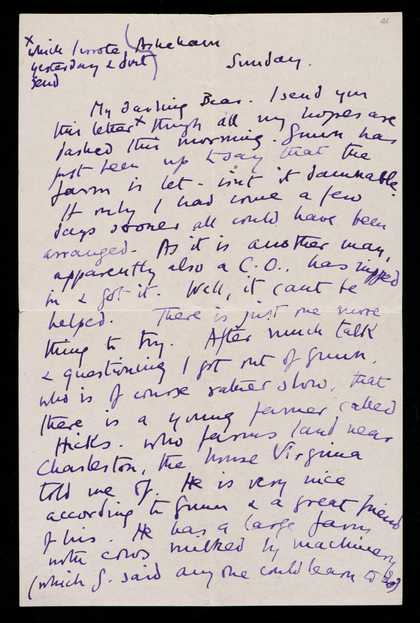 x which I wrote
yesterday & don't
send
Asheham
Sunday.
My darling Bear. I send you
this letter x though all my hopes are
dashed this morning. Gunn has
just been up to say that the
farm is let - isn't it damnable.
If only I had come a few
days sooner all could have been
arranged. As it is another man,
apparently also a C.O., has nipped
in & got it. Well, it can't be
helped. There is just one more
thing to try. After much talk
& questioning I got out of Gunn,
who is of course rather slow, that
there is a young farmer called
Hicks. who farms land near
Charleston, the house Virginia
told me of. He is very nice
according to Gunn & a great friend
of his. He has a large farm
with cows milked by machinery
(which G. said anyone could learn to do)